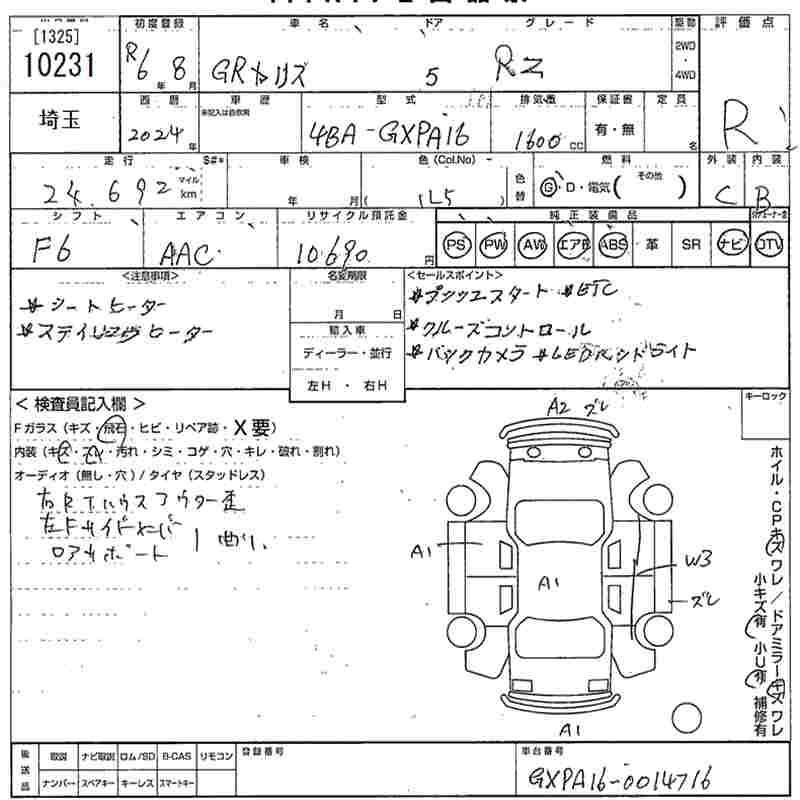 [1325]
10231
埼玉
初度登録
R6年8月
車名
GRヤリズ
ドア
5
グレード
RZ
駆動
2WD
・
4WD
評価点
R
西暦
2024年
車歴
未記入は自家用
型式
4BA-GXPA16
排気量
1600cc
保証書
有・無
定員
名
走行
24,692
マイル
km
S#*
車検
年 月
色(Col.No)
( 1L5 )
色替
燃料
G・D・電気( その他 )
外装
C
内装
B
シフト
F6
エアコン
AAC
リサイクル預託金
10,690円
純正装備品
PS PW AW エアB ABS 革 SR ナビ TV
<注意事項>
*シートヒーター
*ステイリングヒーター
名変期限
月 日
輸入車
ディーラー・並行
左H ・ 右H
<セールスポイント>
*プッシュスタート *ETC
*クルーズコントロール
*バックカメラ *LEDヘッドライト
<検査員記入欄>
Fガラス(キズ・飛石・ヒビ・リペア跡・X要)
内装(キズ・スレ・汚れ・シミ・コゲ・穴・キレ・破れ・割れ)
オーディオ(無し・穴)/タイヤ(スタッドレス)
右Rタイヤハウスアウター歪
左Fサイドメンバ
ロアサポート
曲り
A2 ズレ
A1
A1
W3
ズレ
A1
キーロック
ホイル・CPキズワレ/ドアミラーキズワレ
小キズ有 小U有 補修有
後送品
取説 ナビ取説 ロム/SD B-CAS リモコン
ナンバー スペアキー キーレス スマートキー
登録番号
車台番号
GXPA16-0014716